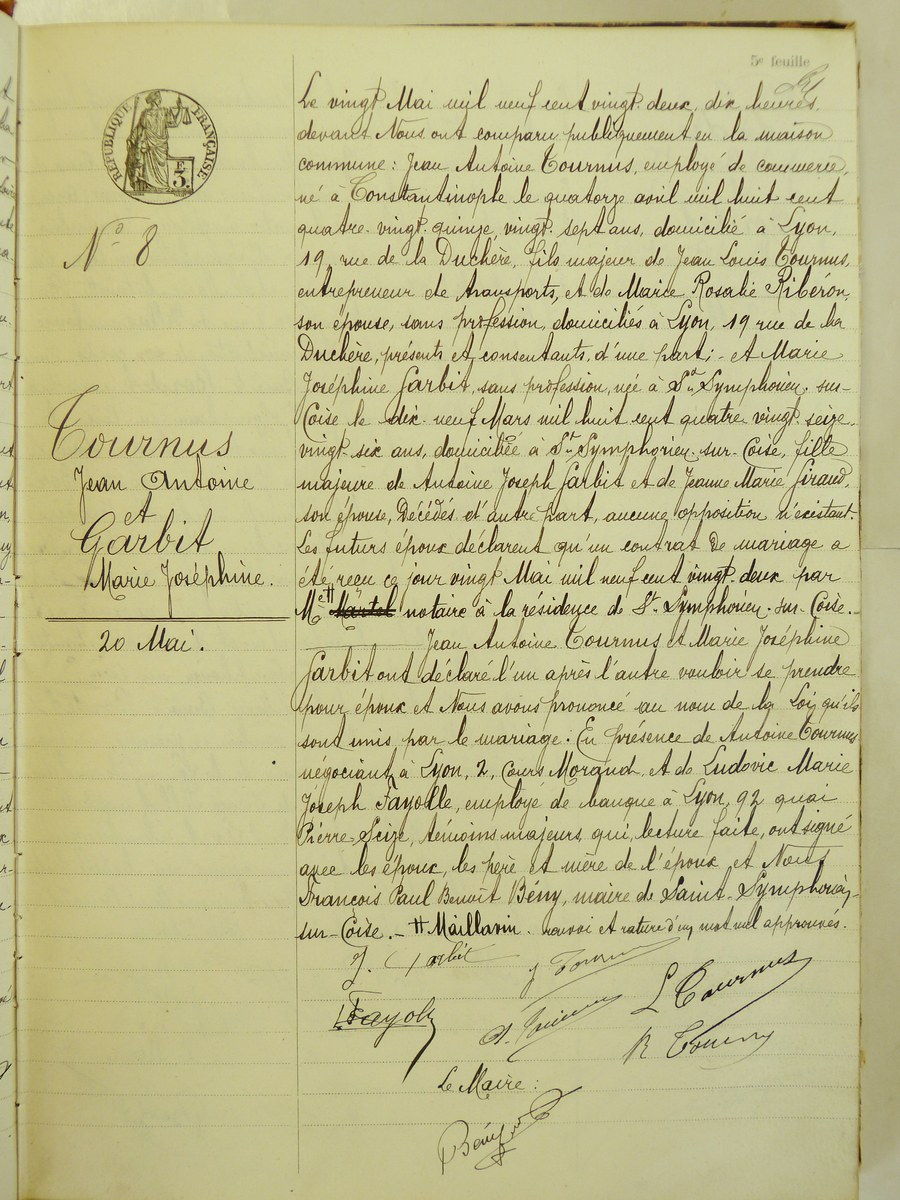 5e feuille
RÉPUBLIQUE FRANÇAISE
E
5.
No 8
Tournus
Jean Antoine
et
Garbit
Marie Joséphine.
20 Mai.
Le vingt Mai mil neuf cent vingt-deux, dix heures,
devant Nous ont comparu publiquement en la maison
commune : Jean Antoine Tournus, employé de commerce,
né à Constantinople le quatorze avril mil huit cent
quatre-vingt quinze, vingt-sept ans, domicilié à Lyon,
19, rue de la Duchère, fils majeur de Jean Louis Tournus,
entrepreneur de transports, et de Marie Rosalie Ribéron,
son épouse, sans profession, domiciliés à Lyon, 19 rue de la
Duchère, présents et consentants, d'une part ; - et Marie
Joséphine Garbit, sans profession, née à St Symphorien-sur-
Coise le dix-neuf Mars mil huit cent quatre-vingt-seize,
vingt-six ans, domiciliée à St Symphorien-sur-Coise, fille
majeure de Antoine Joseph Garbit et de Jeanne Marie Giraud,
son épouse, Décédés d'autre part, aucune opposition n'existant.
Les futurs époux déclarent qu'un contrat de mariage a
été reçu ce jour vingt Mai mil neuf cent vingt-deux par
Me # Martel notaire à la résidence de St Symphorien-sur-Coise.
Jean Antoine Tournus et Marie Joséphine
Garbit ont déclaré l'un après l'autre vouloir se prendre
pour époux et Nous avons prononcé au nom de la Loi qu'ils
sont unis par le mariage. En présence de Antoine Tournus
négociant à Lyon, 2, Cours Morand, et de Ludovic Marie
Joseph Fayolle, employé de banque à Lyon, 92 quai
Pierre-Seize, témoins majeurs, qui, lecture faite, ont signé
avec les époux, les père et mère de l'époux et Nous
François Paul Benoît Bény, maire de Saint-Symphorien-
sur-Coise. - # Maillavin. renvoi et rature d'un mot nul approuvés.
J. Garbit
J Tournus
L Fayolle
A. Tournus
L Tournus
R Tournus
Le Maire :
Bény